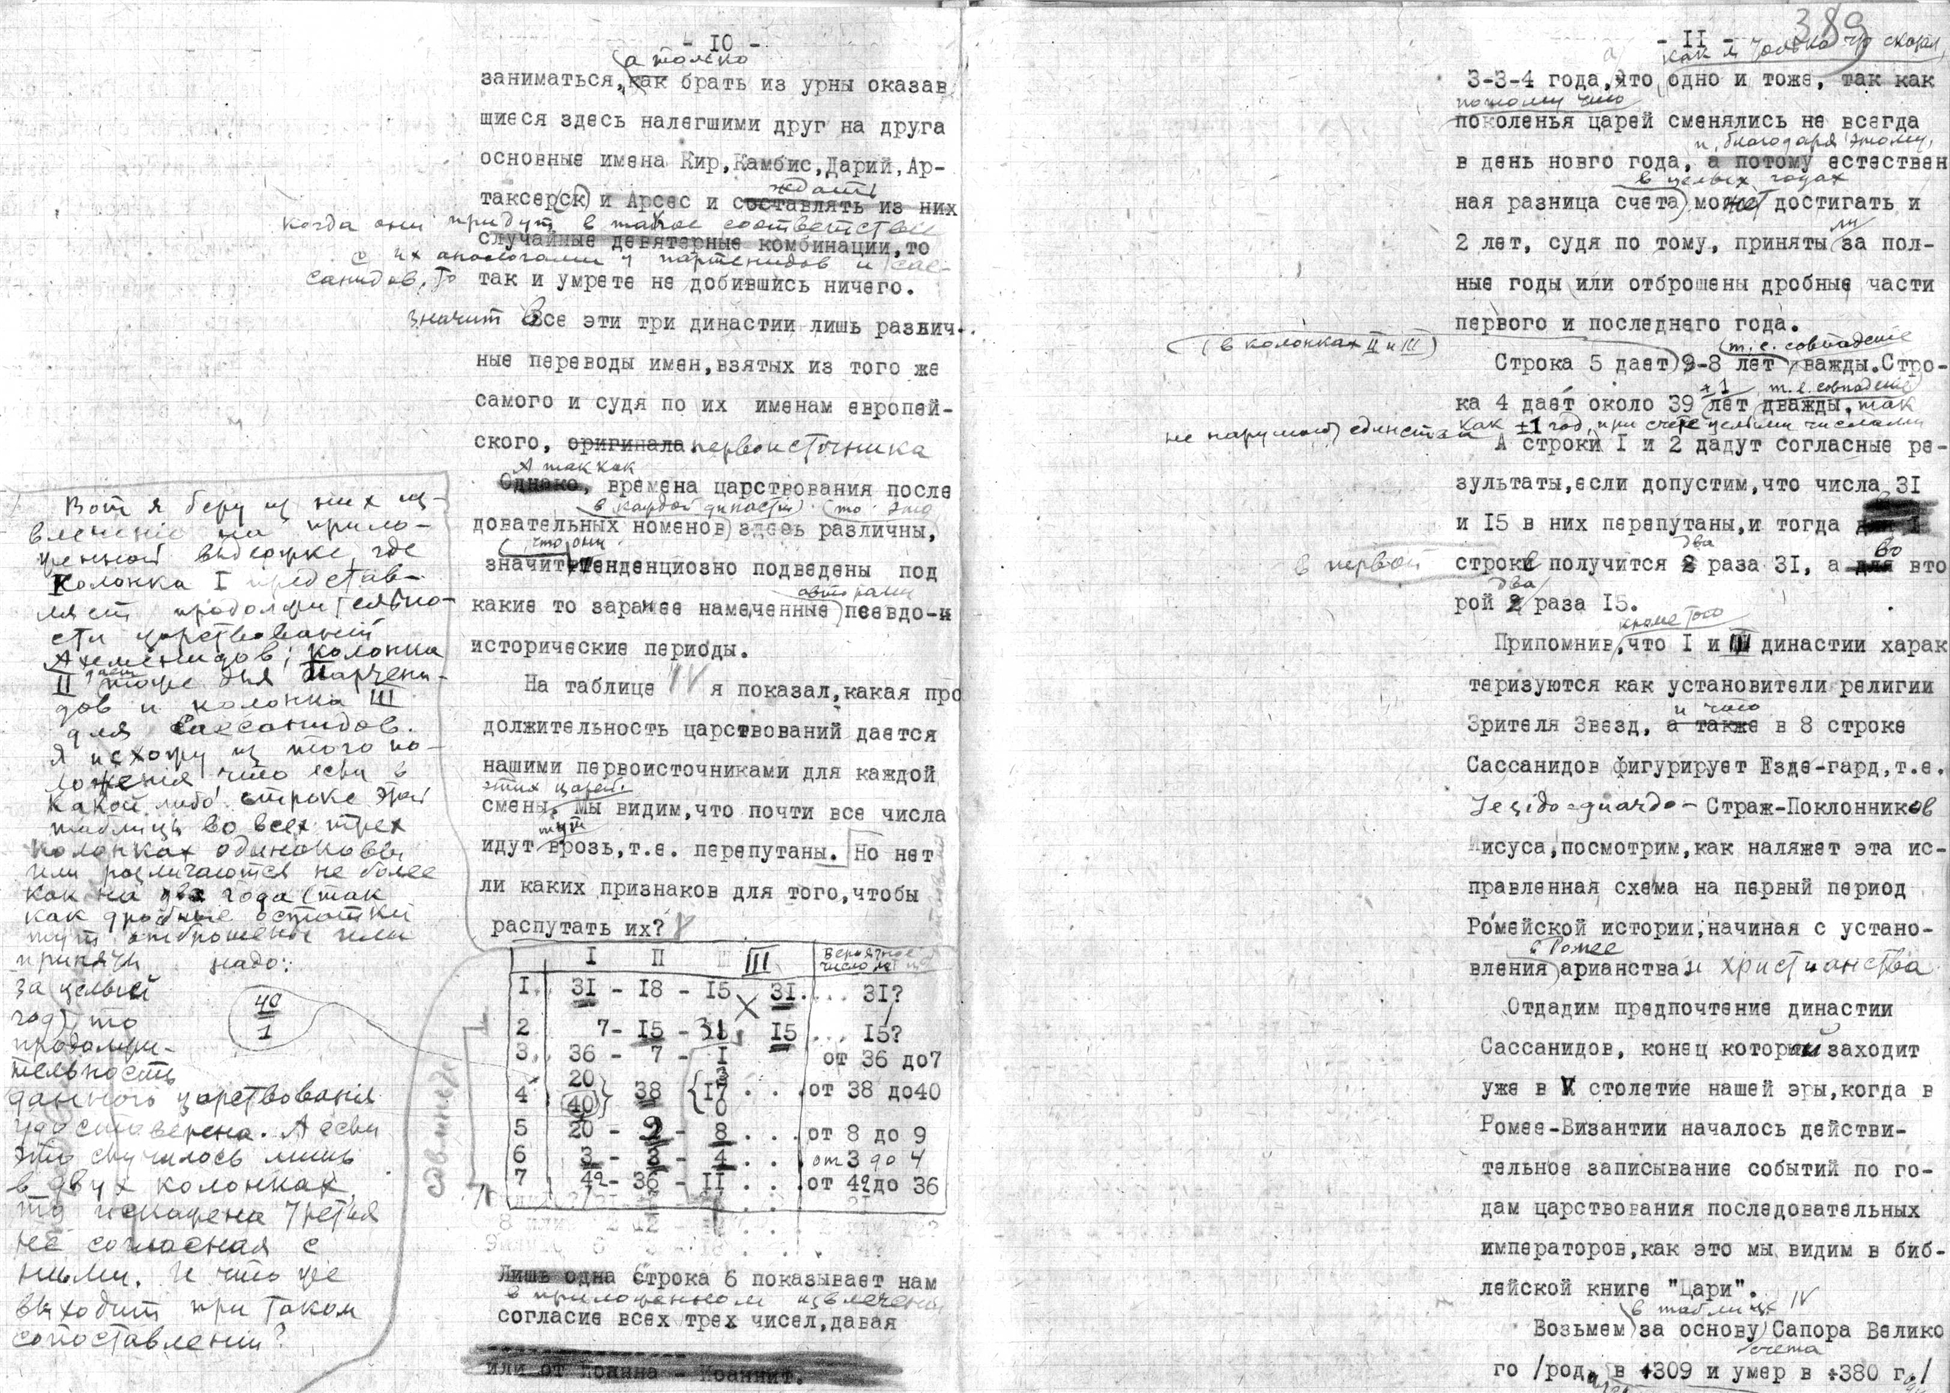 - 10 -
а только
заниматься, как брать из урны оказав
шиеся здесь налегшими друг на друга
основные имена Кир, Камбис, Дарий, Ар-
таксерск и Арсес и составлять из них
ждать
когда они придут в такое соответствие
случайные девятерные комбинации, то
с их аналогами у парфенидов и сас-
санидов, то так и умрете не добившись ничего.
значит Все эти три династии лишь различ-
ные переводы имен, взятых из того же
самого и судя по их именам европей-
ского, оригинала первоисточника
А так как
Однако, времена царствования после
в каждой династии то это
довательных номенов здесь различны,
что они
значит тенденциозно подведены под
авторами
какие то заранее намеченные псевдо-и
исторические периоды.
На таблице IV я показал, какая про
должительность царствований дается
нашими первоисточниками для каждой
этих царей.
смены. Мы видим, что почти все числа
тут
идут врозь, т.е. перепутаны. Но нет
ли каких признаков для того, чтобы
распутать их?
Вот я беру из них из-
влечение на прило-
женной выборке, где
колонка I представ-
ляет продолжительно-
сти царствований
Ахеменидов; колонка
II тоже для Парфени-
дов и колонка III
для Сассанидов.
Я исхожу из того по-
ложения что если в
какой либо строке этой
таблицы во всех трех
колонках одинаковы
или различаются не более
как на два года (так
как дробные остатки
тут отброшены или
приняты надо:
за целый
год) то
продолжи-
тельность
данного царствования
удостоверена. А если
это случилось лишь
в двух колонках,
то искажена третья
не согласная с
ними. И что же
выходит при таком
сопоставлении?
40
1
I II III Вероятное число лет ц.
1. 31 - 18 - 15 31 ... 31?
2 7 - 15 - 31 15 ... 15?
3. 36 - 7 - I от 36 до 7
4 20 40 38 17 ... от 38 до 40
5 20 - 9 - 8 ... от 8 до 9
6 3 - 3 - 4 ... от 3 до 4
7 42 - 36 - II ... от 42 до 36
Лишь одна строка 6 показывает нам
в приложенном извлечении
согласие всех трех чисел, давая
или от Иоанна - Иоаннит.
389
- II -
а как я только что сказал,
3-3-4 года, что одно и тоже, так как
потому что
поколенья царей сменялись не всегда
и, благодаря этому,
в день новго года, а потому естествен
в целых годах
ная разница счета может достигать и
ли
2 лет, судя по тому, приняты за пол-
ные годы или отброшены дробные части
первого и последнего года.
(в колонках II и III) т.е. совпадение
Строка 5 дает 9-8 лет дважды. Стро-
+1 т.е. совпадение
ка 4 дает около 39 лет дважды, так
как ±1 год, при счете целыми числами
не нарушает единства
А строки I и 2 дадут согласные ре-
зультаты, если допустим, что числа 31
и 15 в них перепутаны, и тогда для I
в первой два во
строке получится 2 раза 31, а для вто
два
рой 2 раза 15.
кроме того
Припомнив, что I и III династии харак
теризуются как установители религии
и что
Зрителя Звезд, а также в 8 строке
Сассанидов фигурирует Езде-гард, т.е.
Jezido-guardo - Страж-Поклонников
Иисуса, посмотрим, как наляжет эта ис-
правленная схема на первый период
Ромейской истории, начиная с устано-
в Ромее
вления арианства и христианства
Отдадим предпочтение династии
Сассанидов, конец которой заходит
уже в V столетие нашей эры, когда в
Ромее-Византии началось действи-
тельное записывание событий по го-
дам царствования последовательных
императоров, как это мы видим в биб-
лейской книге "Цари".
в таблице IV
Возьмем за основу Сапора Велико
счета
го /род. в +309 и умер в +380 г./